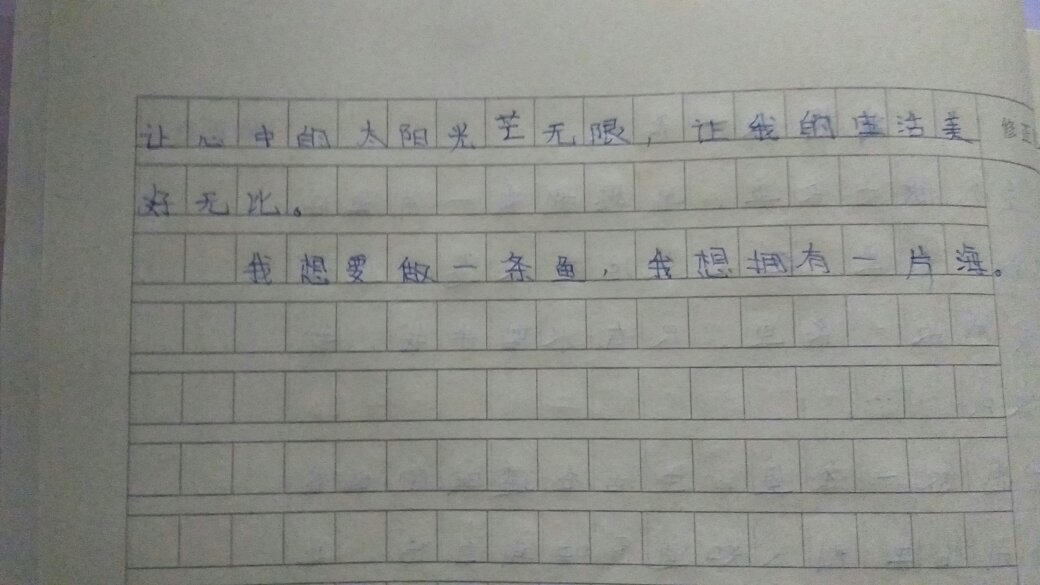 让心中的太阳光芒无限，让我的生活美
好无比。
我想要做一条鱼，我想拥有一片海。
修